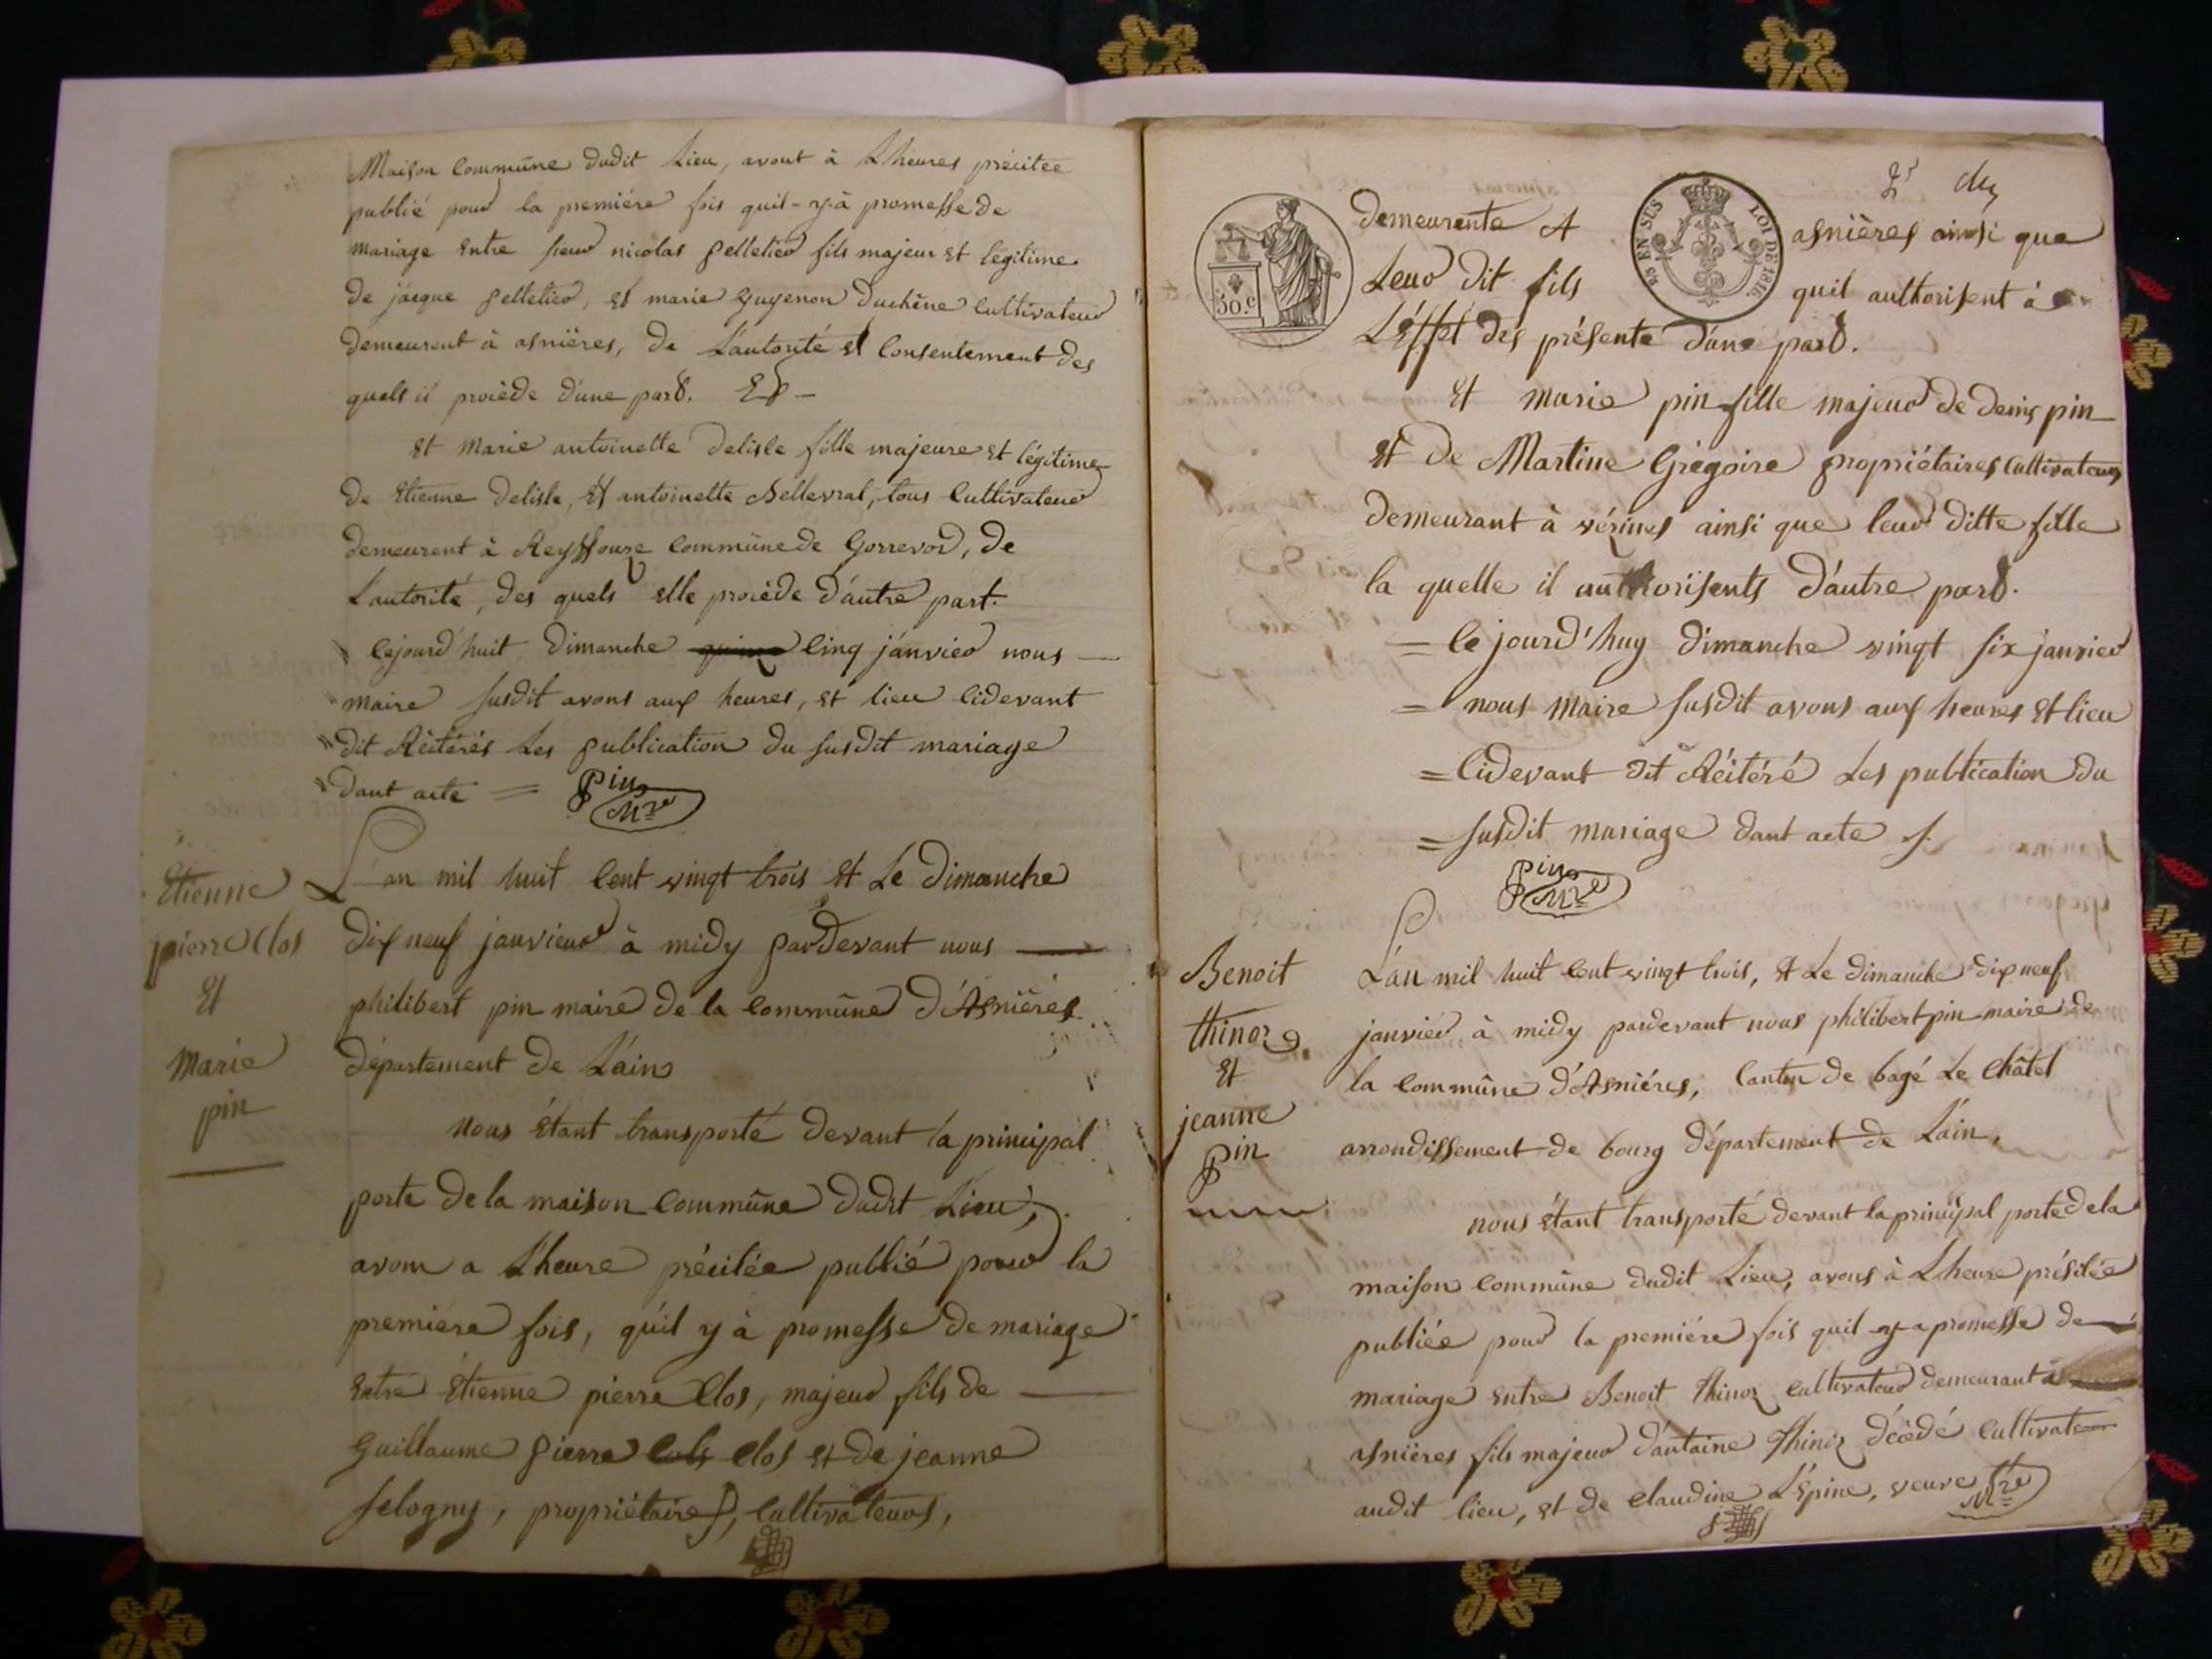 Maison Commune dudit Lieu, avont à Lheures précitée
publié pour la première fois quil-y-à promesse de
mariage Entre sieur nicolas pelletier fils majeur Et légitime
de jacque pelletier, Et marie guyenon duchêne Cultivateur
demeurent à asnières, de L'autorité Et Consentement des
quels il procède d'une part. Et -
Et Marie antoinette delisle fille majeure Et légitime
de Etienne delisle, Et antoinette Bellevrat, tous Cultivateur
demeurent à Reyssouze Commune de Gorrevod, de
L'autorité, des quels Elle procède d'autre part.
Cejourd'huit Dimanche Cinq janvier nous
maire susdit avons aux heures, Et lieu Cidevant
dit Réitérés Les publication du susdit mariage
Dant acte = Pin
Mre
Etienne
pierre Clos
Et
Marie
pin
L'an mil huit Cent vingt trois Et Le Dimanche
dix neuf janvieur à midy pardevant nous
philibert pin maire de la Commune D'Asnières
département de L'ain
Nous Etant transporté devant la principal
porte de la maison Commune dudit Lieu,
avom a L'heure précitée publié pour la
première fois, qu'il y à promesse de mariage
Entre Etienne pierre Clos, majeur fils de
Guillaume pierre Cols Clos Et de jeanne
felogny, propriétaires, Cultivateurs,
2r
30.c
demeurente A
EN SUS LOI DE 1816
asnières ainsi que
Leur dit fils
quil authorisent à
L'effet des présente d'une part.
Et Marie pin fille majeur de denis pin
Et De Martine Grégoire propriétaires Cultivateurs
demeurant à vézines ainsi que leur ditte fille
la quelle il authorisents D'autre part.
= Ce jourd'huy Dimanche vingt six janvier
= nous Maire susdit avons aux heures Et lieu
= Cidevant dit Réitéré Les publication du
= susdit mariage dant acte
Pin
Mre
Benoit
thinoz
Et
jeanne
pin
L'an mil huit Cent vingt trois, Et Le Dimanche dix neuf
janvier à midy pardevant nous philibert pin maire de
la Commune d'Asnières, Canton de bagé Le Châtel
arrondissement de bourg département de L'ain,
nous Etant transporté devant la principal porte de la
maison Commune dudit Lieu, avons à L'heure présitée
publiée pour la première fois quil y a promesse de
mariage Entre Benoit thinoz Cultivateur demeurant à
asnières fils majeur d'antoine thinoz décédé Cultivateur
audit lieu, Et de Claudine L'Epine, veuve
Mre